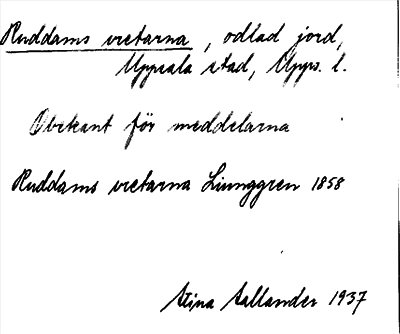 Ruddams vretarna, odlad jord,
Uppsala stad, Upps. l.
Obekant för meddelarna
Ruddams vretarna Ljunggren 1858
Stina Sallander 1937